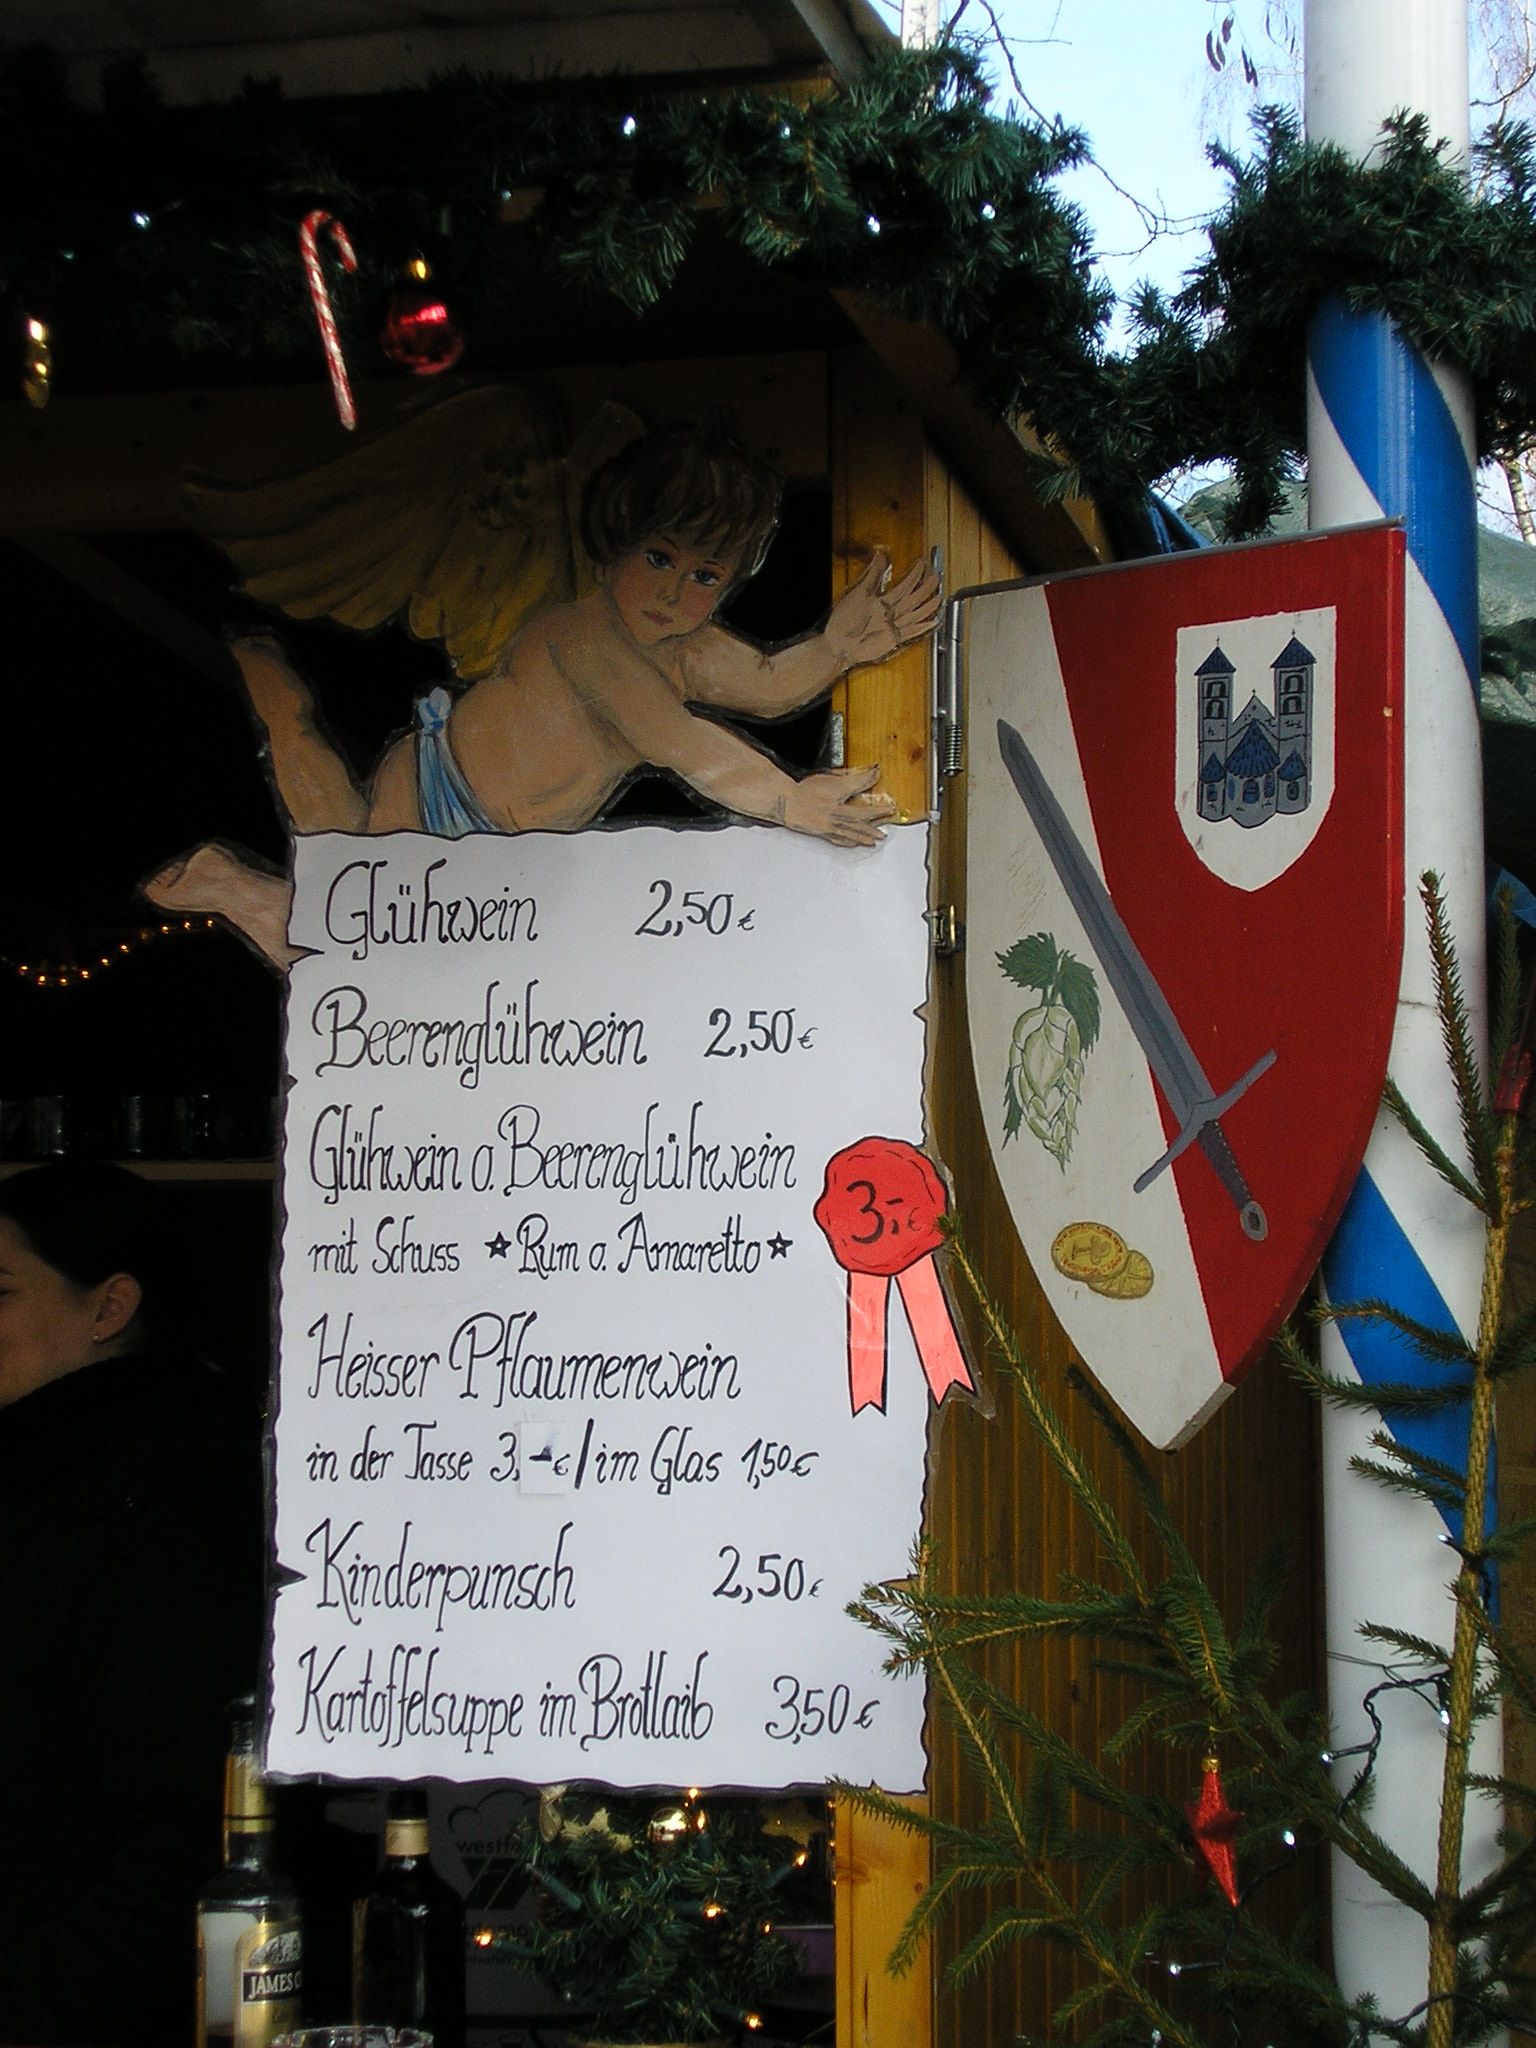 Glühwein 2,50€
Beerenglühwein 2,50€
Glühwein o. Beerenglühwein
mit Schuss ☆Rum o. Amaretto☆ 3,-€
Heisser Pflaumenwein
in der Tasse 3,-€/im Glas 1,50€
Kinderpunsch 2,50€
Kartoffelsuppe im Brotlaib 3,50€
JAMES